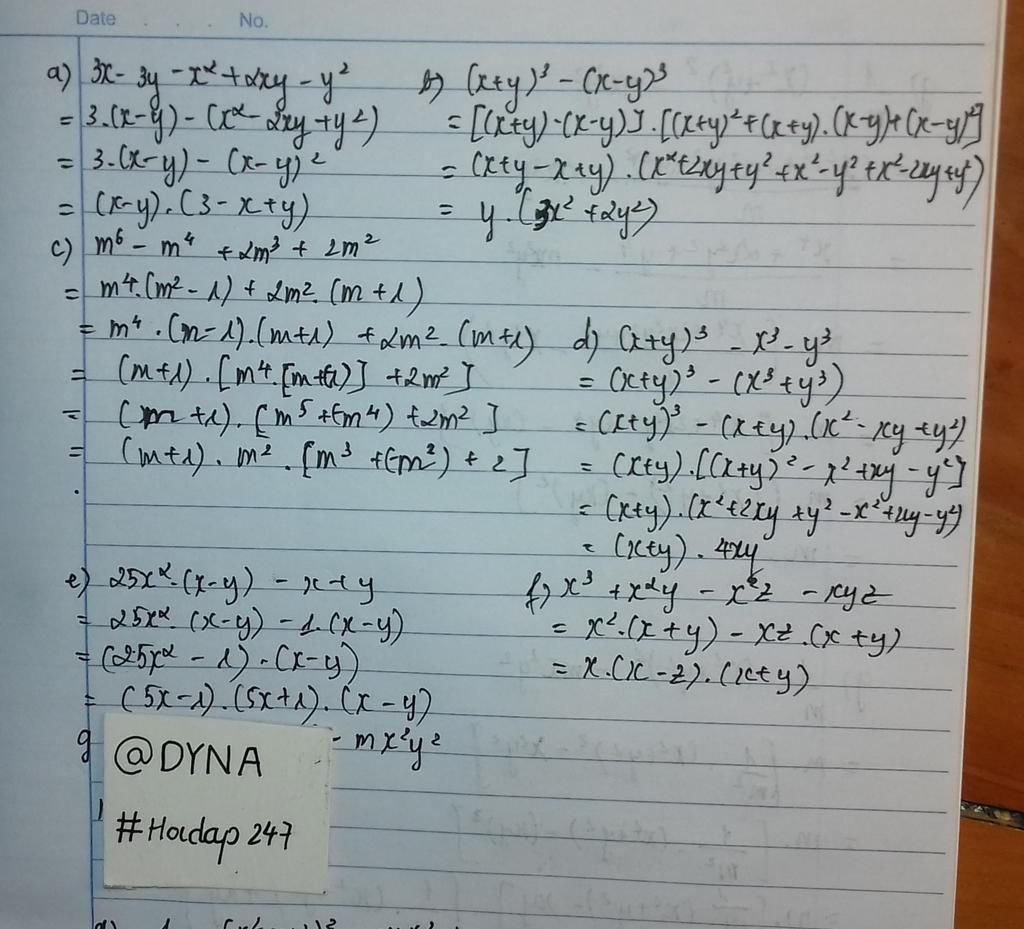 Date . . . No.
a) 3x - 3y - x² + 2xy - y²
= 3.(x-y) - (x² - 2xy + y²)
= 3.(x-y) - (x-y)²
= (x-y).(3 - x + y)
b) (x+y)³ - (x-y)³
= [(x+y) - (x-y)].[(x+y)² + (x+y).(x-y) + (x-y)²]
= (x+y-x+y).(x²+2xy+y²+x²-y²+x²-2xy+y²)
= y.(3x² + 2y²)
c) m⁶ - m⁴ + 2m³ + 2m²
= m⁴.(m² - 1) + 2m².(m+1)
= m⁴.(m-1).(m+1) + 2m².(m+1)
= (m+1).[m⁴.[m+(-1)] + 2m²]
= (m+1).[m⁵ + (-m⁴) + 2m²]
= (m+1).m².[m³ + (-m²) + 2]
d) (x+y)³ - x³ - y³
= (x+y)³ - (x³+y³)
= (x+y)³ - (x+y).(x² - xy + y²)
= (x+y).[(x+y)² - x² + xy - y²]
= (x+y).(x²+2xy+y²-x²+2xy-y²)
= (x+y).4xy
e) 25x².(x-y) - x + y
= 25x².(x-y) - 1.(x-y)
= (25x² - 1).(x-y)
= (5x-1).(5x+1).(x-y)
f) x³ + x²y - x²z - xyz
= x².(x+y) - xz.(x+y)
= x.(x-z).(x+y)
g - mx²y²
@DYNA
#Hoidap247